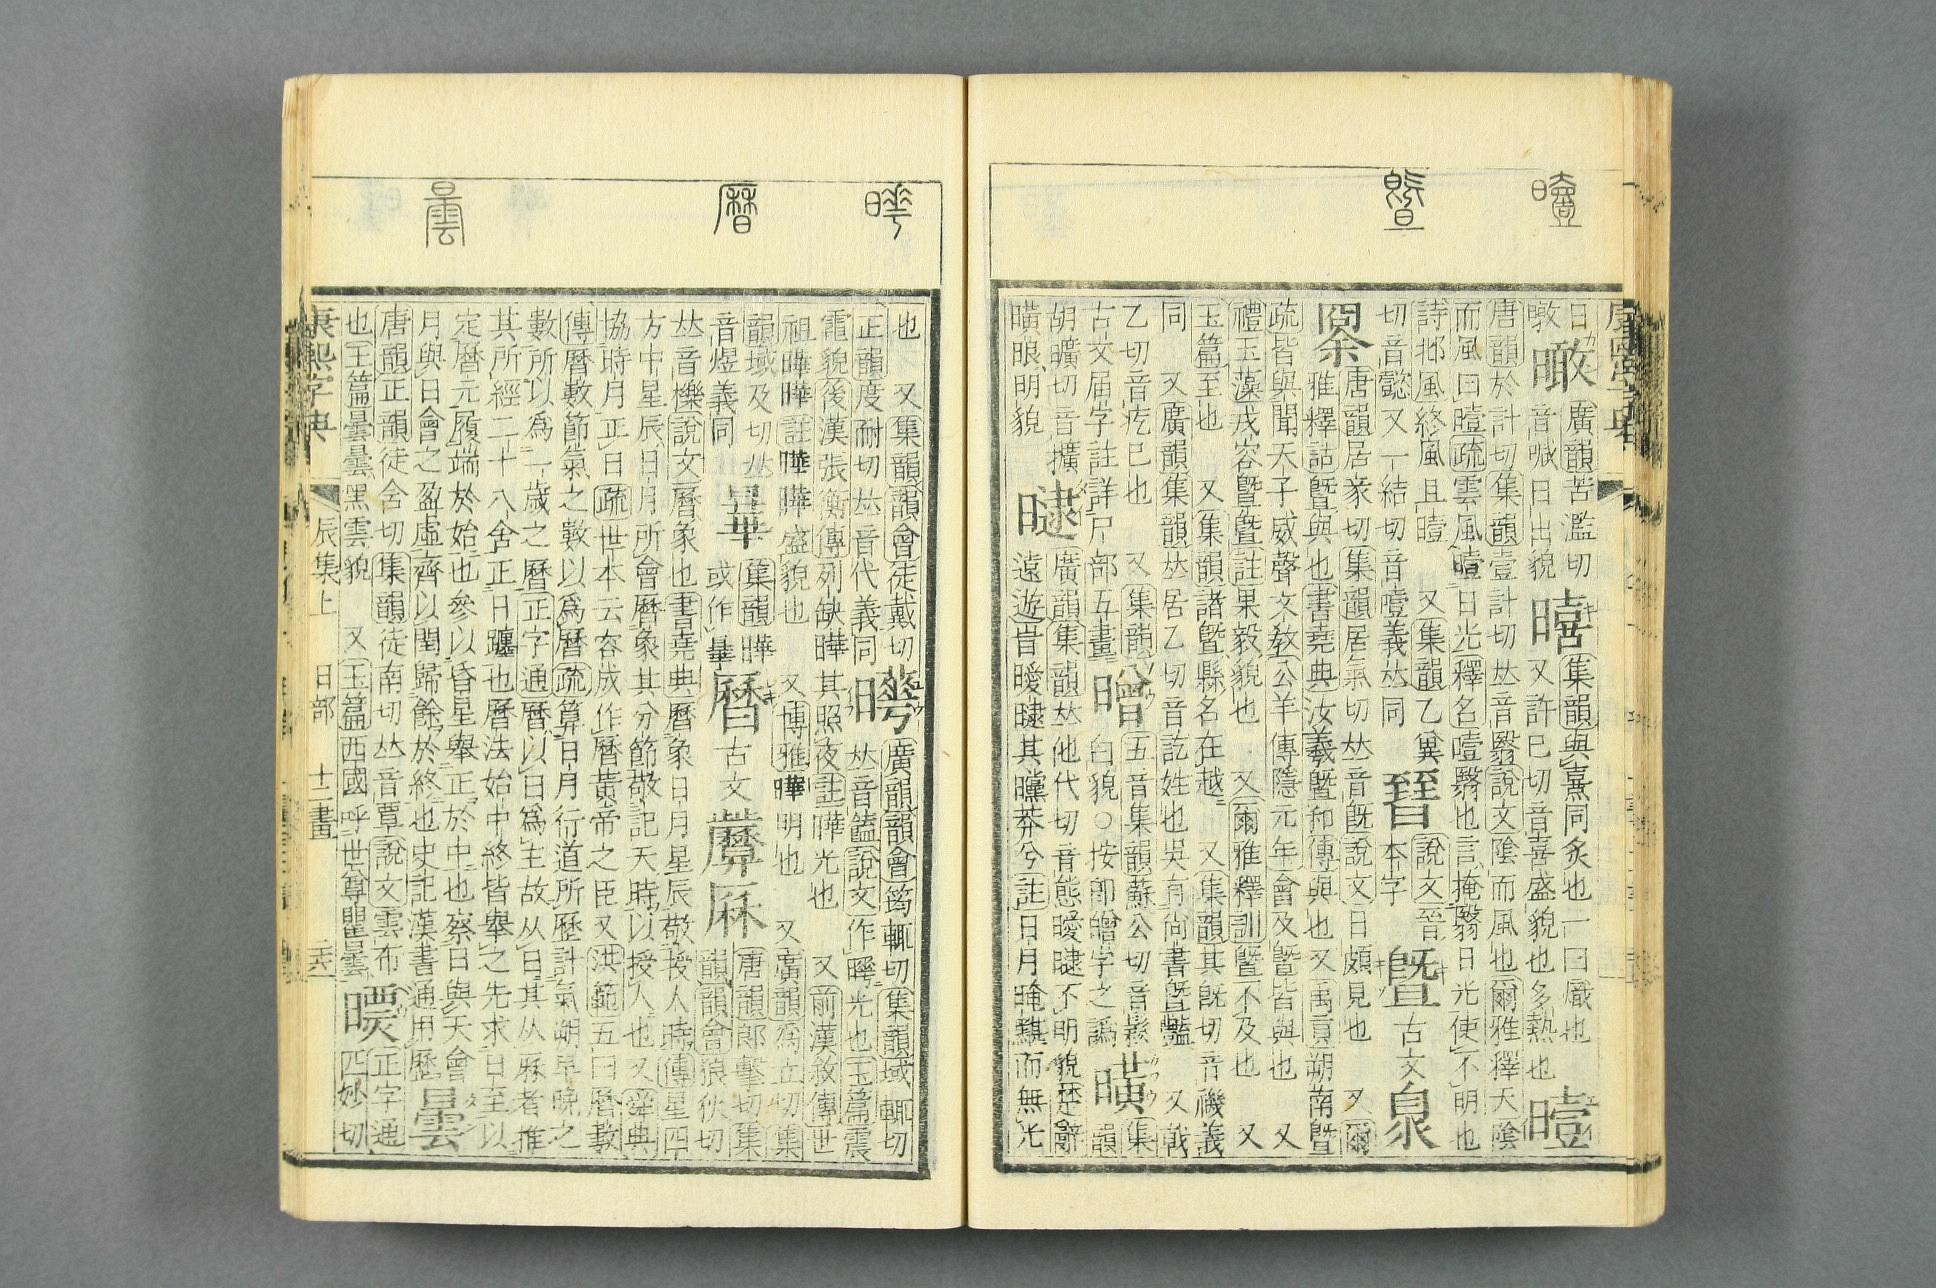 曀
曁
日
廣韻苦濫切
暾
㬒
音㘎日出貌
暿
集韻與熹同炙也一曰熾也
又許已切音喜盛貌也多熱也
曀
唐韻於計切集韻壹計切𠀤音翳說文陰而風也爾雅釋天陰
而風曰曀疏雲風曀日光釋名曀翳也言掩翳日光使不明也
詩邶風終風且曀 又集韻乙兾
切音懿又一結切音噎義𠀤同
晉
說文晉
本字
曁
古文
唐韻居家切集韻居氣切𠀤音旣說文日頗見也 又爾
雅釋詁曁與也書堯典汝羲曁和傳與也又禹貢朔南曁
疏皆與聞天子威聲文敎公羊傳隱元年會及曁皆與也 又
禮玉藻戎容曁曁註果毅貌也 又爾雅釋訓曁不及也 又
玉篇至也 又集韻諸曁縣名在越 又集韻其旣切音禨義
同 又廣韻集韻𠀤居乙切音訖姓也吳有尚書曁豔 又戟
乙切音疙已也 又集韻
古文届字註詳尸部五畫
㬝
五音集韻蘇公切音鬆
白貌○按卽㬝字之譌
曂
集
韻
胡曠切音擴
曂㫰明貌
曃
廣韻集韻𠀤他代切音態曖曃不明貌楚辭
遠遊旹曖曃其曭莽兮註日月晻黮而無光
曅
曆
曇
也 又集韻韻會徒戴切
正韻度耐切𠀤音代義同
曄
廣韻韻會筠輒切集韻域輒切
𠀤音饁說文作曅光也玉篇震
電貌後漢張衡傳列缺曄其照夜註曄光也 又前漢敘傳世
祖曄曄註曄曄盛貌也 又博雅曄明也 又廣韻爲立切集
韻域及切𠀤
音煜義同
曅
集韻曄
或作曅
曆
古文
厤
唐韻郎擊切集
韻韻會狼狄切
𠀤音櫟說文曆象也書堯典曆象日月星辰敬授人時傳星四
方中星辰日月所會曆象其分節敬記天時以授人也又舜典
協時月正日疏世本云容成作曆黃帝之臣又洪範五曰曆數
傳曆數節氣之數以爲曆疏算日月行道所歷計氣朔早晚之
數所以爲一歲之曆正字通曆以日爲主故从日其从厤者推
其所經二十八舍正日躔也曆法始中終皆舉之先求日至以
定曆元履端於始也參以昏星舉正於中也察日與天會
月與日會之盈虛齊以閏歸餘於終也史記漢書通用歷
曇
唐韻正韻徒含切集韻徒南切𠀤音覃說文雲布
也玉篇曇曇黑雲貌 又玉篇西國呼世尊瞿曇
㬓
正字通
匹妙切
康熙字典
辰集上 日部 十二畫